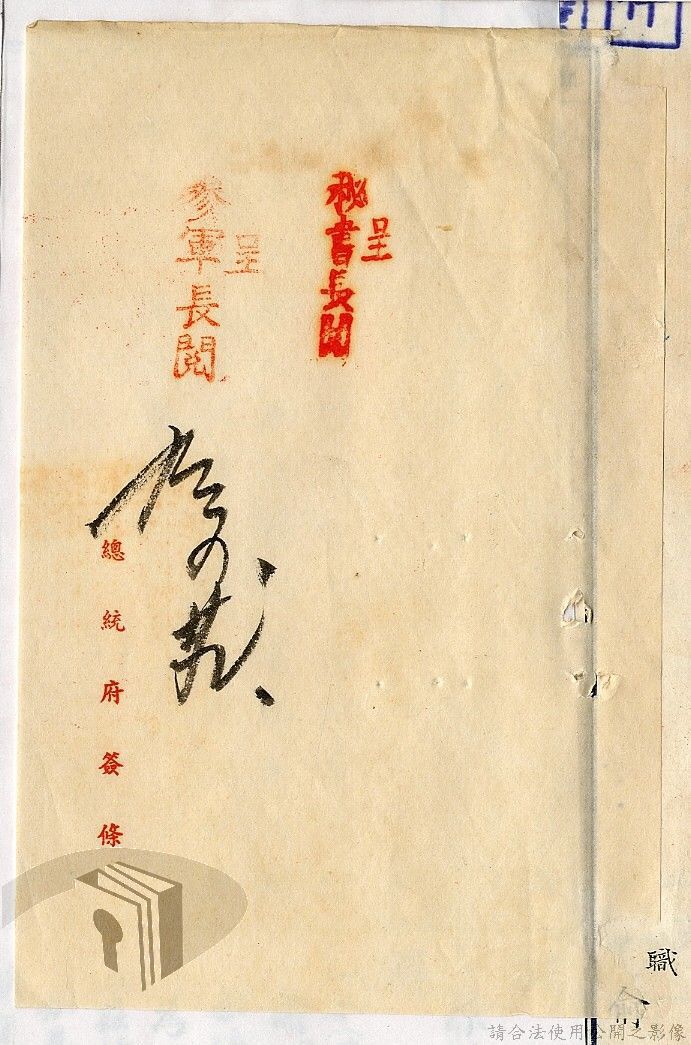 職
呈
秘書長閱
呈
參軍長閱
總統府簽條
請合法使用公開之影像